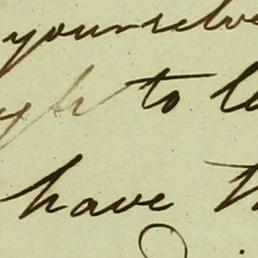 yourselve
to le
have th